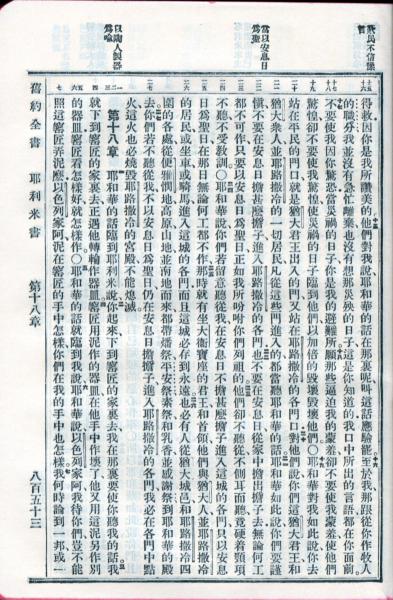 當以安息日爲聖
以陶人製器爲喻
得救因你是我所讚美的他們對我說耶和華的話在那裏呢叫這話應驗罷至於我那跟從你作牧人
的職分我並沒有急忙離棄也沒有想那災殃的日子這是你知道的我口中所出的言語都在你面前
不要使我因你驚恐當災禍的日子你是我的避難所願那些逼迫我的蒙羞卻不要使我蒙羞使他們
驚惶卻不要使我驚惶使災禍的日子臨到他們以加倍的毀壞毀壞他們〇耶和華對我如此說你去
站在平民的門口就是猶大君王出入的門又站在耶路撒冷的各門口對他們說你們這猶大君王和
猶大衆人並耶路撒冷的一切居民凡從這些門進入的都當聽耶和華的話耶和華如此說你們要謹
愼不要在安息日擔甚麽擔子進入耶路撒冷的各門也不要在安息日從家中擔出擔子去無論何工
都不可作只要以安息日爲聖日正如我所吩咐你們列祖的他們卻不聽從不側耳而聽竟硬着頸項
不聽不受教訓〇耶和華說你們若留意聽從我在安息日不擔甚麽擔子進入這城的各門只以安息
日爲聖日在那日無論何工都不作那時就有坐大衛寶座的君王和首領他們與猶大人並耶路撒冷
的居民或坐車或騎馬進入這城的各門而且這城必存到永遠也必有人從猶大城邑和耶路撒冷四
圍的各處從便雅憫地高原山地並南地而來都帶燔祭平安祭素祭和乳香並感謝祭到耶和華的殿
去你們若不聽從我不以安息日爲聖日仍在安息日擔擔子進入耶路撒冷的各門我必在各門中點
火這火也必燒毀耶路撒冷的宮殿不能熄滅
第十八章 耶和華的話臨到耶利米說你起來下到窰匠的家裏去我在那裏要使你聽我的話我
就下到窰匠的家裏去正遇他轉輪作器皿窰匠用泥作的器皿在他手中作壞了他又用這泥另作別
的器皿窰匠看怎樣好就怎樣作〇耶和華的話就臨到我說耶和華說以色列家阿我待你們豈不能
照這窰匠弄泥麽以色列家阿泥在窰匠的手中怎樣你們在我的手中也怎樣我何時論到一邦或一
舊約全書 耶利米書 第十八章 八百五十三